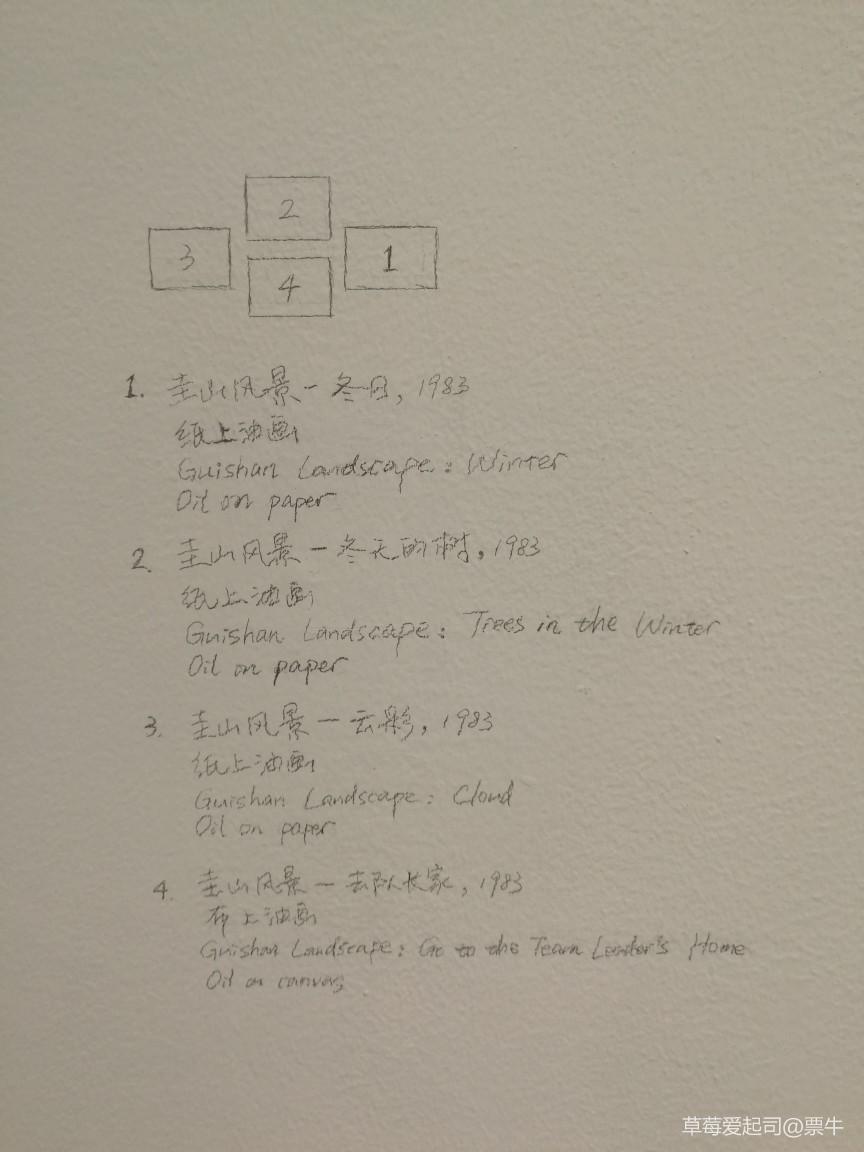 2
3 1
4
1. 圭山风景－冬日, 1983
纸上油画
Guishan Landscape: Winter
Oil on paper
2. 圭山风景－冬天的树, 1983
纸上油画
Guishan Landscape: Trees in the Winter
Oil on paper
3. 圭山风景－云彩, 1983
纸上油画
Guishan Landscape: Cloud
Oil on paper
4. 圭山风景－去队长家, 1983
布上油画
Guishan Landscape: Go to the Team Leader's Home
Oil on canvas
草莓爱起司@票牛